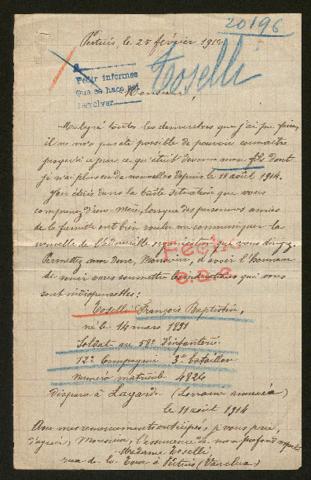 20196
Toselli
Pertuis, le 25 février 191
Pedir informes
que se hace
Monsieur,
Malgré toutes les demarches que j'ai pu faire,
il ne m'a pas été possible de pouvoir connaître
jusqu'à ce jour ce qu'était devenu mon fils dont
je n'ai plus eu de nouvelles depuis le 11 août 1914.
J'en étais dans la triste situation que vous
comprenez d'une Mère, lorsque des personnes amies
de la famille ont bien voulu me communiquer la
nouvelle de
Permettez moi donc, Monsieur, d'avoir l'honneur
de vous soumettre qui vous
sont indispensables:
Fecho
Toselli François Baptistin,
né le 14 mars 1891
Soldat au 58e d'infanterie
12e Compagnie 3e bataillon
numéro matricule 4824
disparu à Lagarde (Lorraine annexée)
le 11 août 1914
Avec mes remerciements anticipés, je vous prie,
d'agréer, Monsieur, l'assurance de mon profond respect
Madame Toselli
rue de la Tour à Pertuis (Vaucluse)